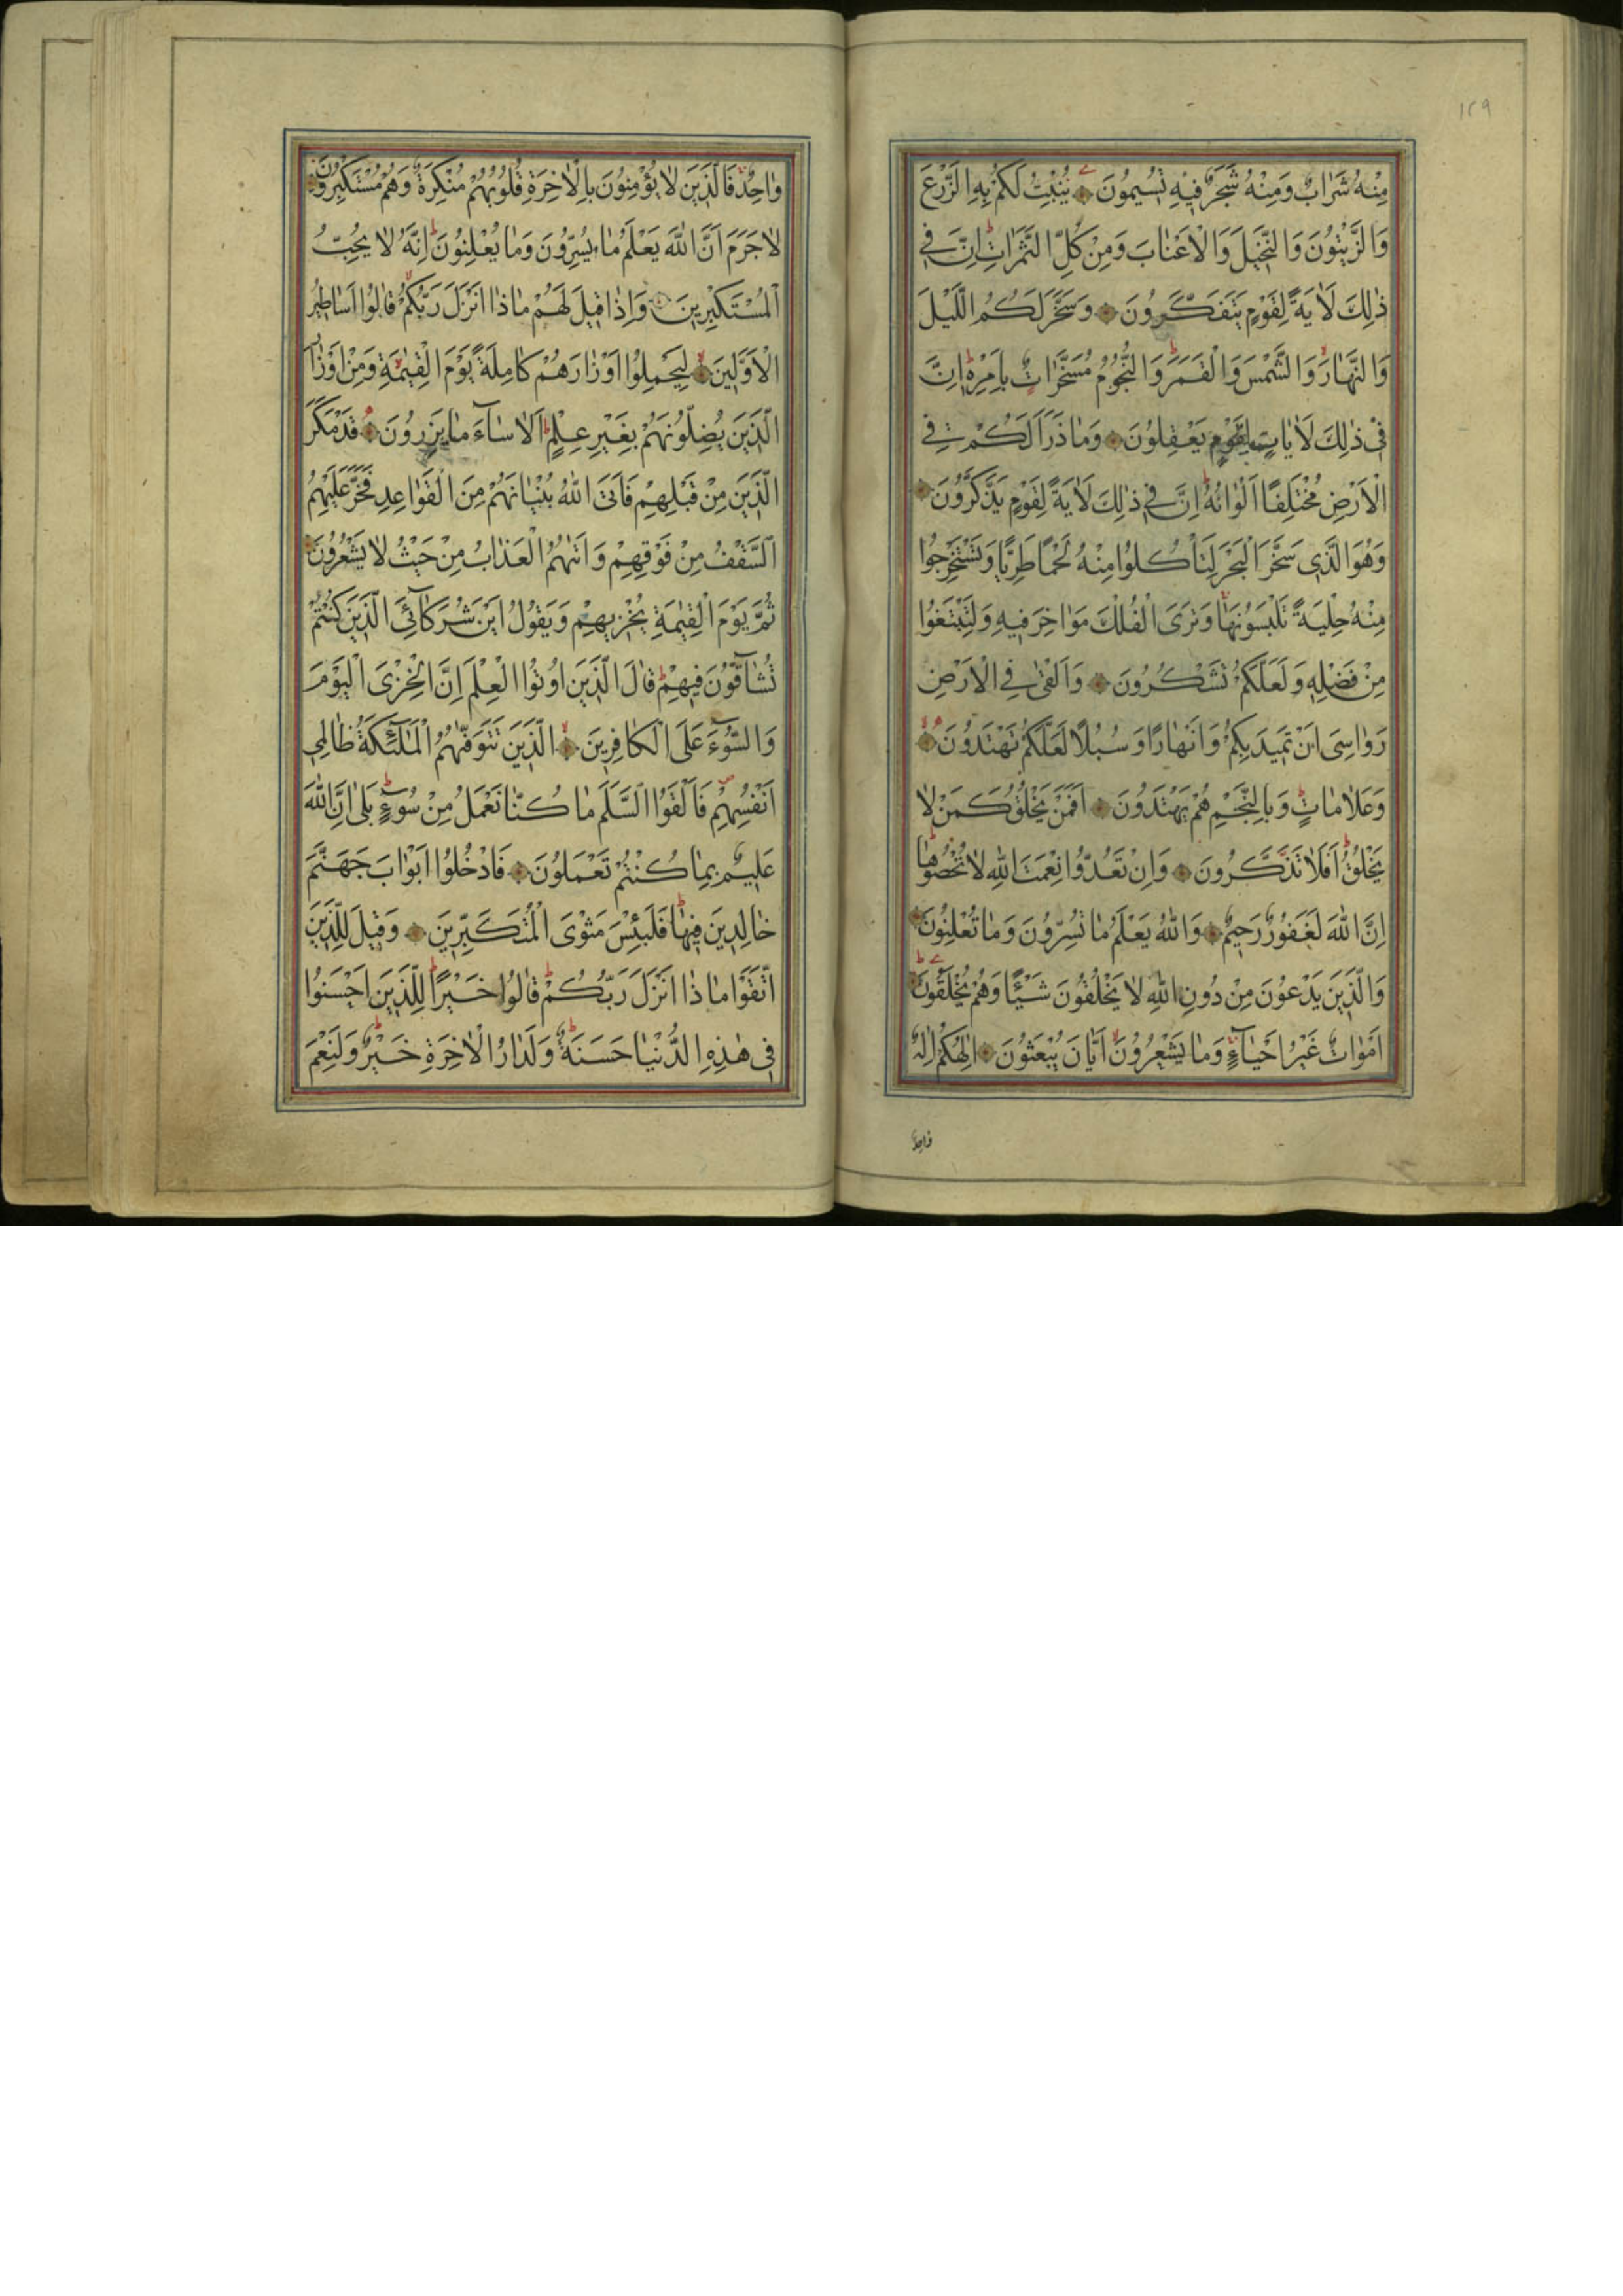 ١٢٩
مِنْهُ شَرَابٌ وَمِنْهُ شَجَرٌ فِيهِ تُسِيمُونَ يُنْبِتُ لَكُمْ بِهِ الزَّرْعَ
وَالزَّيْتُونَ وَالنَّخِيلَ وَالْاَعْنَابَ وَمِنْ كُلِّ الثَّمَرَاتِ ط اِنَّ فِي
ذٰلِكَ لَاٰيَةً لِقَوْمٍ يَتَفَكَّرُونَ وَسَخَّرَ لَكُمُ اللَّيْلَ
وَالنَّهَارَ وَالشَّمْسَ وَالْقَمَرَ ط وَالنُّجُومُ مُسَخَّرَاتٌ بِاَمْرِهِ ط اِنَّ
فِي ذٰلِكَ لَاٰيَاتٍ لِقَوْمٍ يَعْقِلُونَ وَمَا ذَرَاَ لَكُمْ فِي
الْاَرْضِ مُخْتَلِفًا اَلْوَانُهُ ط اِنَّ فِي ذٰلِكَ لَاٰيَةً لِقَوْمٍ يَذَّكَّرُونَ
وَهُوَ الَّذِي سَخَّرَ الْبَحْرَ لِتَاْكُلُوا مِنْهُ لَحْمًا طَرِيًّا وَتَسْتَخْرِجُوا
مِنْهُ حِلْيَةً تَلْبَسُونَهَا وَتَرَى الْفُلْكَ مَوَاخِرَ فِيهِ وَلِتَبْتَغُوا
مِنْ فَضْلِهِ وَلَعَلَّكُمْ تَشْكُرُونَ وَاَلْقٰى فِي الْاَرْضِ
رَوَاسِيَ اَنْ تَمِيدَ بِكُمْ وَاَنْهَارًا وَسُبُلًا لَعَلَّكُمْ تَهْتَدُونَ
وَعَلَامَاتٍ ط وَبِالنَّجْمِ هُمْ يَهْتَدُونَ اَفَمَنْ يَخْلُقُ كَمَنْ لَا
يَخْلُقُ ط اَفَلَا تَذَكَّرُونَ وَاِنْ تَعُدُّوا نِعْمَتَ اللّٰهِ لَا تُحْصُوهَا ط
اِنَّ اللّٰهَ لَغَفُورٌ رَحِيمٌ وَاللّٰهُ يَعْلَمُ مَا تُسِرُّونَ وَمَا تُعْلِنُونَ
وَالَّذِينَ يَدْعُونَ مِنْ دُونِ اللّٰهِ لَا يَخْلُقُونَ شَيْئًا وَهُمْ يُخْلَقُونَ
اَمْوَاتٌ غَيْرُ اَحْيَاءٍ وَمَا يَشْعُرُونَ اَيَّانَ يُبْعَثُونَ اِلٰهُكُمْ اِلٰهٌ
وَاحِدٌ
وَاحِدٌ فَالَّذِينَ لَا يُؤْمِنُونَ بِالْاٰخِرَةِ قُلُوبُهُمْ مُنْكِرَةٌ وَهُمْ مُسْتَكْبِرُونَ
لَا جَرَمَ اَنَّ اللّٰهَ يَعْلَمُ مَا يُسِرُّونَ وَمَا يُعْلِنُونَ ط اِنَّهُ لَا يُحِبُّ
الْمُسْتَكْبِرِينَ وَاِذَا قِيلَ لَهُمْ مَاذَا اَنْزَلَ رَبُّكُمْ قَالُوا اَسَاطِيرُ
الْاَوَّلِينَ لِيَحْمِلُوا اَوْزَارَهُمْ كَامِلَةً يَوْمَ الْقِيٰمَةِ وَمِنْ اَوْزَارِ
الَّذِينَ يُضِلُّونَهُمْ بِغَيْرِ عِلْمٍ ط اَلَا سَاءَ مَا يَزِرُونَ قَدْ مَكَرَ
الَّذِينَ مِنْ قَبْلِهِمْ فَاَتَى اللّٰهُ بُنْيَانَهُمْ مِنَ الْقَوَاعِدِ فَخَرَّ عَلَيْهِمُ
السَّقْفُ مِنْ فَوْقِهِمْ وَاَتٰهُمُ الْعَذَابُ مِنْ حَيْثُ لَا يَشْعُرُونَ
ثُمَّ يَوْمَ الْقِيٰمَةِ يُخْزِيهِمْ وَيَقُولُ اَيْنَ شُرَكَائِيَ الَّذِينَ كُنْتُمْ
تُشَاقُّونَ فِيهِمْ ط قَالَ الَّذِينَ اُوتُوا الْعِلْمَ اِنَّ الْخِزْيَ الْيَوْمَ
وَالسُّوءَ عَلَى الْكَافِرِينَ الَّذِينَ تَتَوَفّٰهُمُ الْمَلٰئِكَةُ ظَالِمِي
اَنْفُسِهِمْ ص فَاَلْقَوُا السَّلَمَ مَا كُنَّا نَعْمَلُ مِنْ سُوءٍ ط بَلٰى اِنَّ اللّٰهَ
عَلِيمٌ بِمَا كُنْتُمْ تَعْمَلُونَ فَادْخُلُوا اَبْوَابَ جَهَنَّمَ
خَالِدِينَ فِيهَا ط فَلَبِئْسَ مَثْوَى الْمُتَكَبِّرِينَ وَقِيلَ لِلَّذِينَ
اتَّقَوْا مَاذَا اَنْزَلَ رَبُّكُمْ ط قَالُوا خَيْرًا ط لِلَّذِينَ اَحْسَنُوا
فِي هٰذِهِ الدُّنْيَا حَسَنَةٌ ط وَلَدَارُ الْاٰخِرَةِ خَيْرٌ ط وَلَنِعْمَ